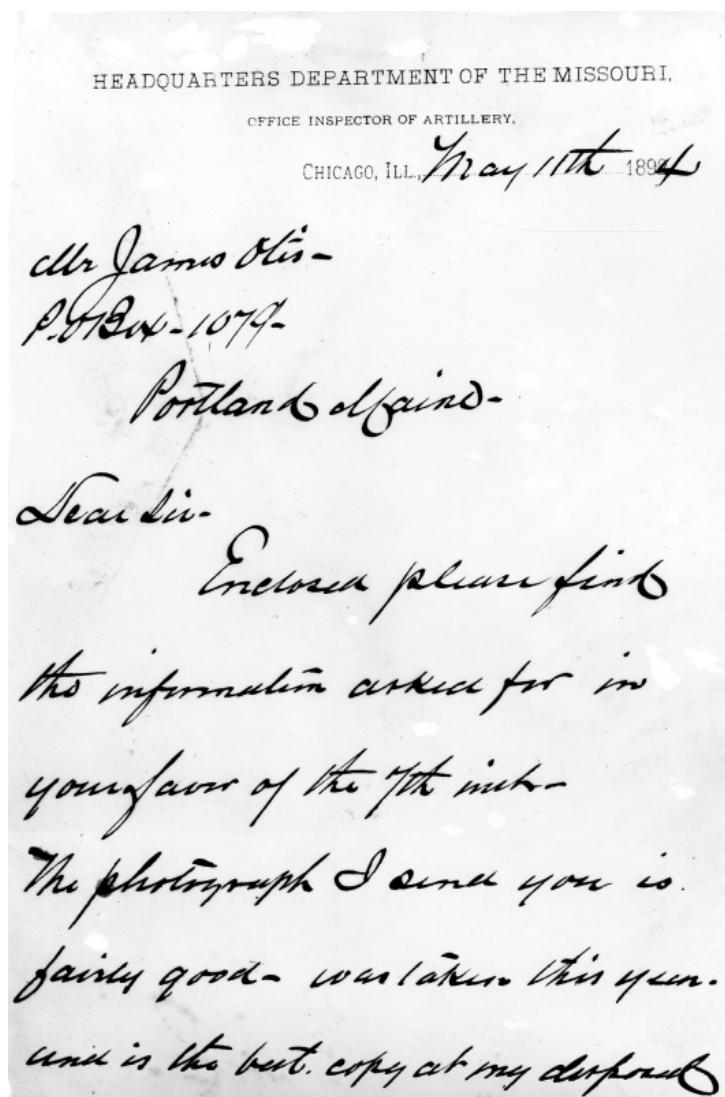 HEADQUARTERS DEPARTMENT OF THE MISSOURI,
OFFICE INSPECTOR OF ARTILLERY,
CHICAGO, ILL., May 11th 1894
Mr James Otis-
P.O Box-1079-
Portland Maine-
Dear Sir-
Enclosed please find
the information asked for in
your favor of the 7th inst-
The photograph I send you is
fairly good- was taken this year-
and is the best copy at my disposal